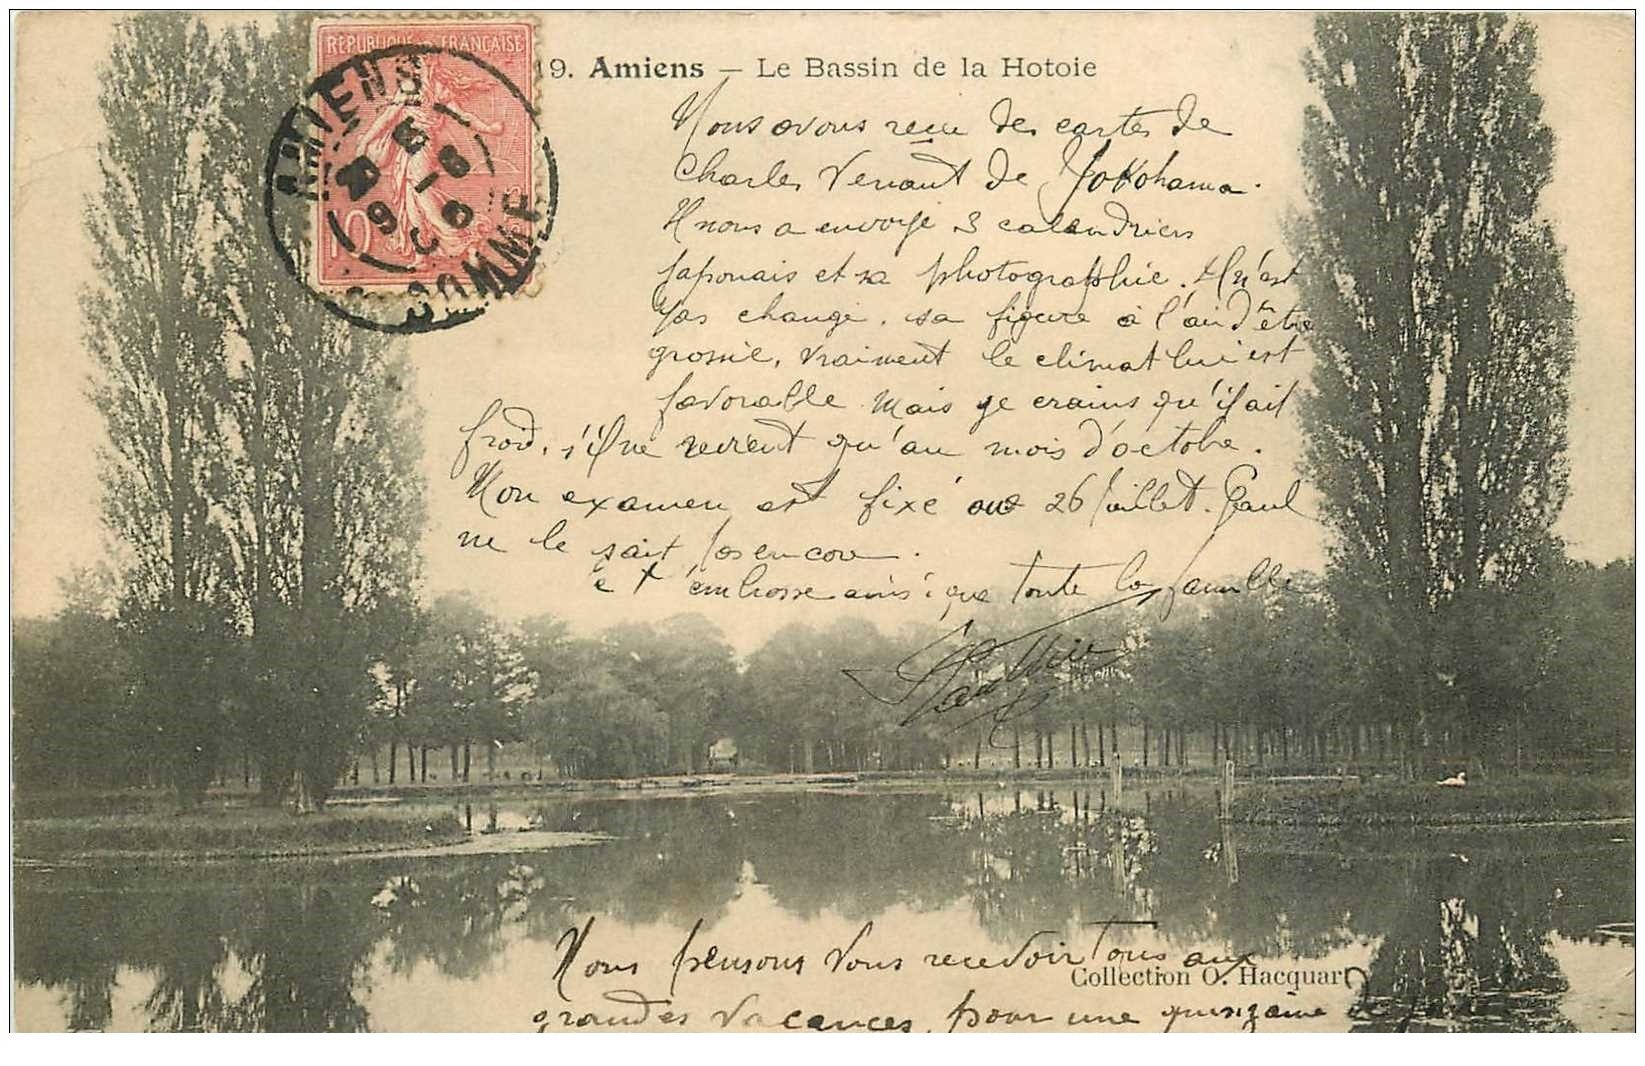 REPUBLIQUE FRANÇAISE
10
AMIENS
SOMME
19. Amiens — Le Bassin de la Hotoie
Nous avons recu des cartes de
Charles Venant de Yokohama.
Il nous a envoyé 3 calendriers
japonais et sa photographie. Il n'est
pas changé, sa figure a l'air d'être
grossie, vraiment le climat lui est
favorable. Mais je crains qu'il ait
froid, s'il ne revient qu'au mois d'octobre.
Mon examen est fixé au 26 Juillet. Paul
ne le sait pas encore.
et t'embrasse ainsi que toute la famille
Nous pensons vous recevoir tous aux
Collection O. Hacquar
grandes vacances, pour une quinzaine de